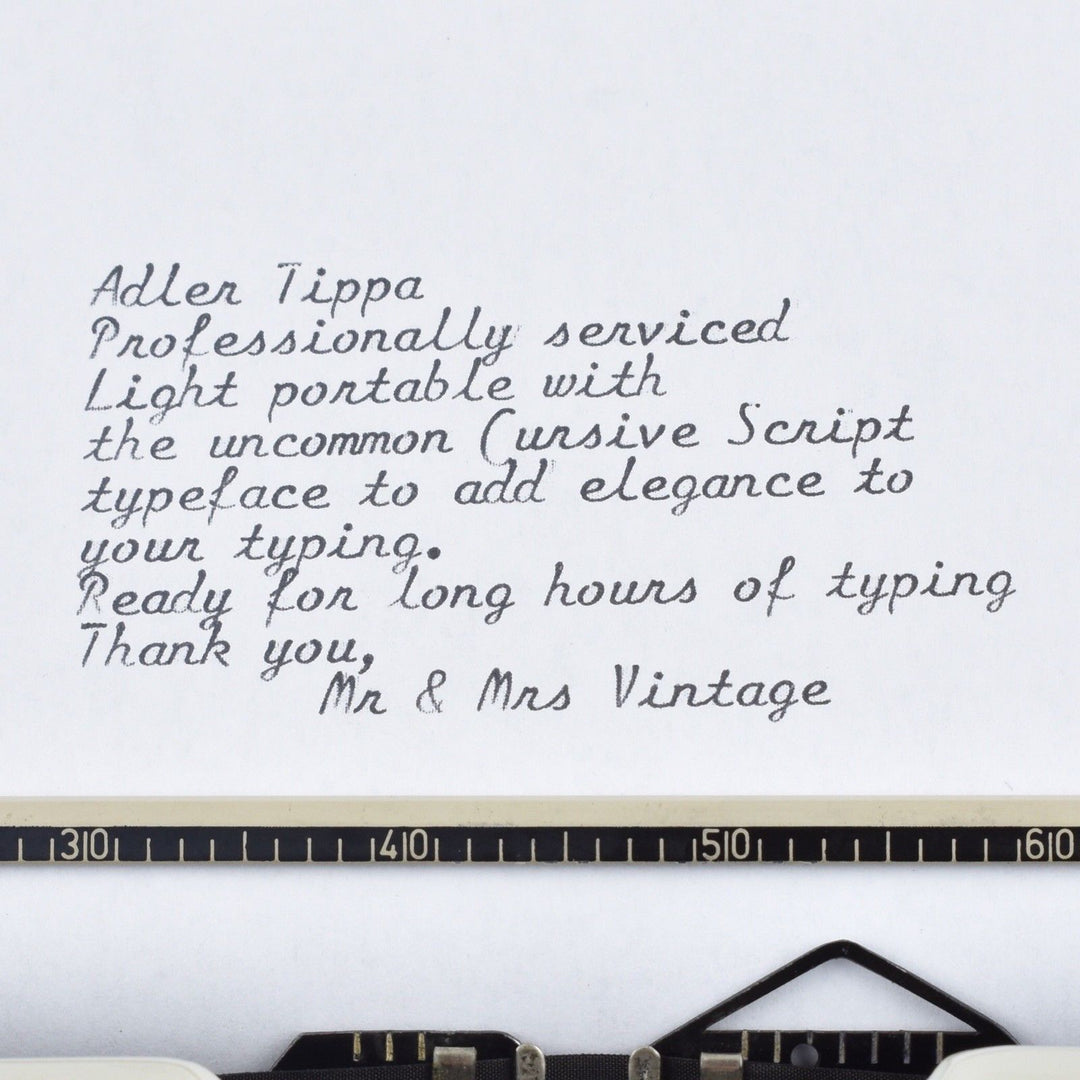 Adler Tippa
Professionally serviced
Light portable with
the uncommon Cursive Script
typeface to add elegance to
your typing.
Ready for long hours of typing
Thank you,
Mr & Mrs Vintage
30 40 50 60